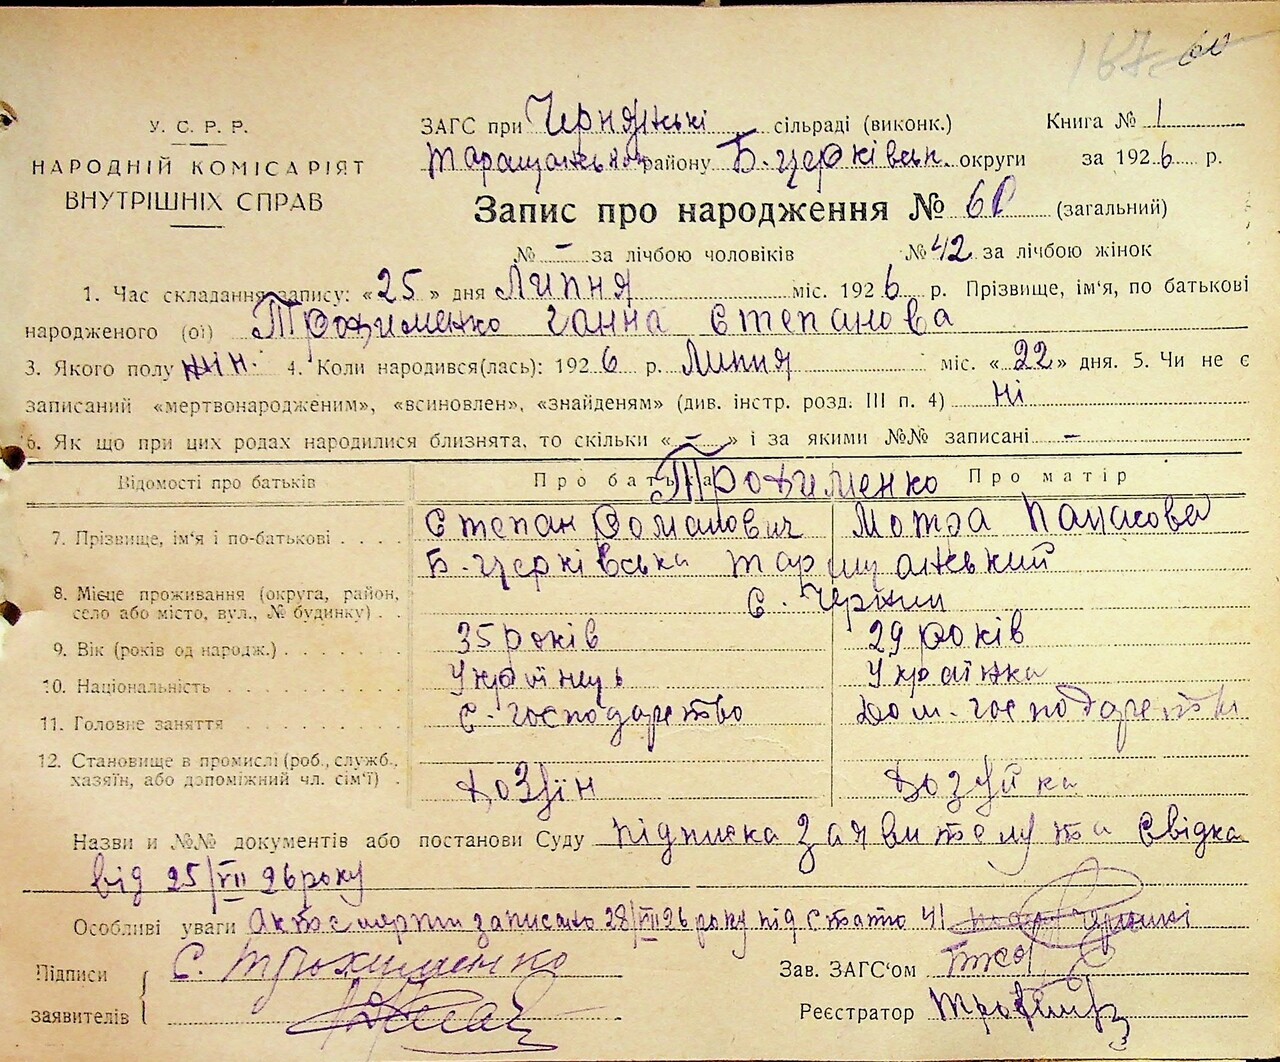 167 60
У. С. Р. Р.
НАРОДНІЙ КОМІСАРІЯТ
ВНУТРІШНІХ СПРАВ
ЗАГС при Чернянські сільраді (виконк.) Книга № 1
Таращанськом району Б-Церківськ. округи за 1926 р.
Запис про народження № 60 (загальний)
№ – за лічбою чоловіків № 42 за лічбою жінок
1. Час складання запису: «25» дня Липня міс. 1926 р. Прізвище, ім'я, по батькові
народженого (ої) Трохименко Ганна Степанова
3. Якого полу жін. 4. Коли народився(лась): 1926 р. Липня міс. «22» дня. 5. Чи не є
записаний «мертвонародженим», «всиновлен», «знайденям» (див. інстр. розд. III п. 4) Ні
6. Як що при цих родах народилися близнята, то скільки «–» і за якими №№ записані –
Відомості про батьків Про батька Про матір
Трохименко
7. Прізвище, ім'я і по-батькові Степан Романович Мотра Панасова
Б-Церківська Таращанський
8. Місце проживання (округа, район,
село або місто, вул., № будинку) С. Чернин
9. Вік (років од народж.) 35 років 29 років
10. Національність Українець Українка
11. Головне заняття С.-господарство Дом.-господарство
12. Становище в промислі (роб., служб.,
хазяїн, або допоміжний чл. сім'ї) Хозяїн Хозяйка
Назви и №№ документів або постанови Суду підписка заявителя та свідка
від 25/VII 26 року
Особливі уваги Акт смерти записано 28/VII 26 року під статтю 41
Підписи С. Трохименко Зав. ЗАГС'ом
заявителів Реєстратор